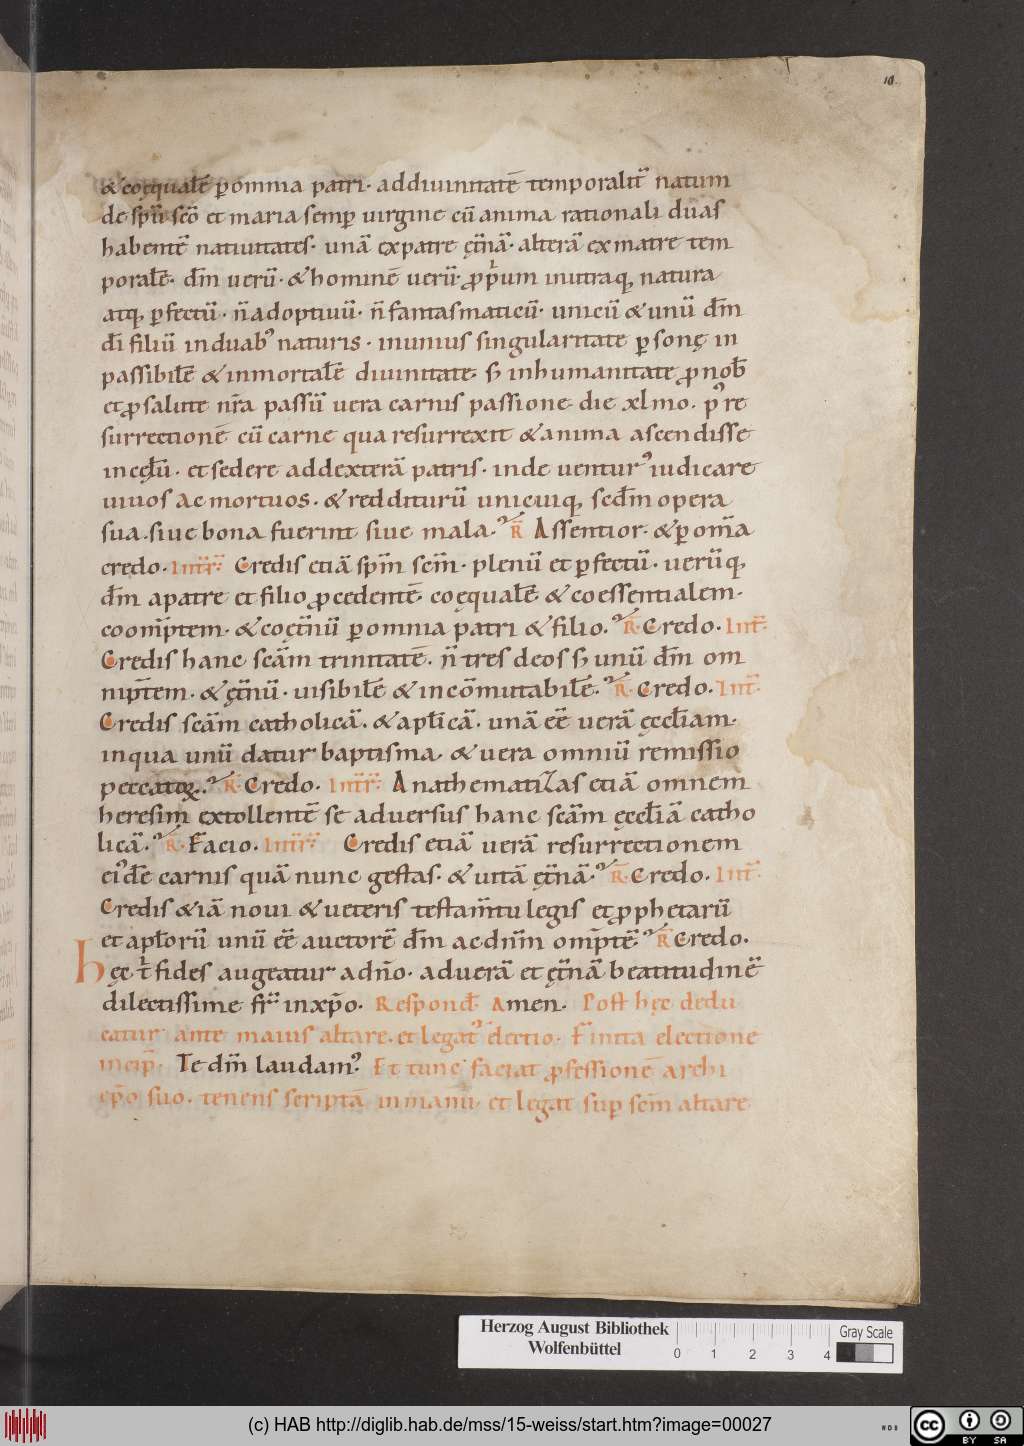 10.
& coęqualē ꝑ omnia patri· ad diuinitatē temporalit̄ natum
de sp̄u sc̄o et maria semꝑ uirgine cū anima rationali duas
habentē natiuitates· unā ex patre ęt̄nā· alterā ex matre tem
poralē· dm̄ uerū· & hominē uerū· ꝓprium in utraq; natura
atq; ꝑfectū· n̄ adoptiuū· n̄ fantasmaticū· unicū & unū dm̄
dī filiū in duabꝰ naturis· in unius singularitate ꝑsonę in
passibilē & inmortalē diuinitate· sꝫ in humanitate ꝓ nob̄
et ꝓ salute nr̄a passū uera carnis passione· die xl mo· pꝰ re
surrectionē cū carne qua resurrexit & anima ascendisse
in cęlū· et sedere ad dexterā patris· inde venturꝰ iudicare
uiuos ac mortuos· & redditurū unicuiq; scd̄m opera
sua· siue bona fuerint siue mala. R̄ Assentior· & ꝑ om̄a
credo· Int̄r̄ Credis etiā sp̄m sc̄m· plenū et ꝑfectū· uerūq;
dm̄ a patre et filio ꝓcedentē· coęqualē & coessentialem·
coom̄ptem· & coęt̄nū ꝑ omnia patri & filio. R̄ Credo. Int̄
Credis hanc sc̄am trinitatē· n̄ tres deos sꝫ unū dm̄ om
nipt̄em· & ęt̄nū· uisibilē & incōmutabilē. R̄ Credo. Int̄
Credis sc̄am catholicā· & apl̄icā· unā eē̄ uerā ęccl̄iam·
in qua unū datur baptisma· & uera omniū remissio
peccatoꝝ. R̄ Credo. Int̄r̄ Anathematizas etiā omnem
heresim extollentē se aduersus hanc sc̄am ęccl̄iā catho
licā. R̄ Facio. Int̄r̄ Credis etiā uerā resurrectionem
eiꝰdē carnis quā nunc gestas· & uitā ęt̄nā. R̄ Credo. Int̄
Credis &iā noui & ueteris testam̄tu legis et ꝓphetarū
et apl̄orū unū eē̄ auctorē dm̄ ac dnm̄ om̄ptē. R̄ Credo.
hęc t̄ fides augeatur a dn̄o· ad uerā et ęt̄nā beatitudinē
dilectissime fr̄ in xp̄o. Respond̄ Amen. Post hęc dedu
catur ante maius altare. et legatꝰ electio. Finita electione
incip̄. Te dm̄ laudamꝰ. Et tunc faciat ꝓfessionē archi
ep̄o suo. tenens scriptā in manu et legat suꝑ sc̄m altare
Herzog August Bibliothek
Wolfenbüttel
0 1 2 3 4
Gray Scale
(c) HAB http://diglib.hab.de/mss/15-weiss/start.htm?image=00027
cc BY SA